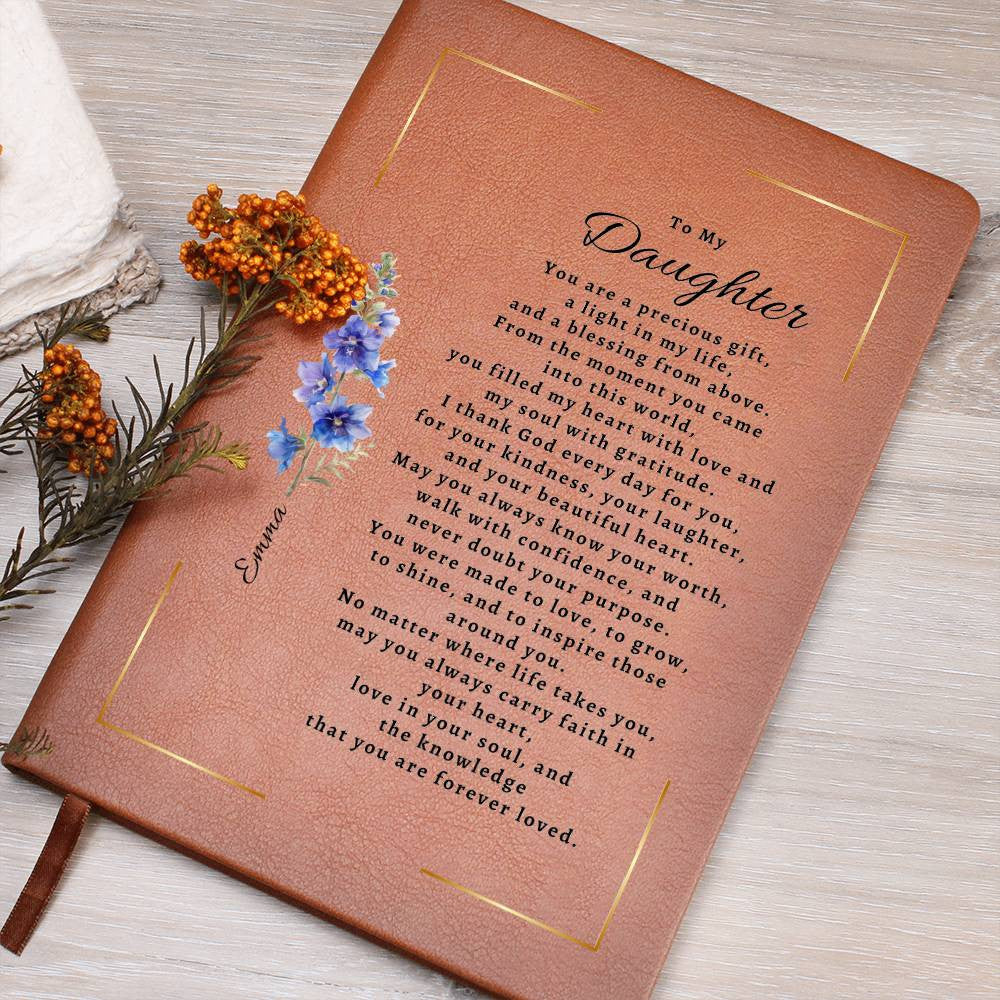 To My
Daughter
You are a precious gift,
a light in my life,
and a blessing from above.
From the moment you came
into this world,
you filled my heart with love and
my soul with gratitude.
I thank God every day for you,
for your kindness, your laughter,
and your beautiful heart.
May you always know your worth,
walk with confidence, and
never doubt your purpose.
You were made to love, to grow,
to shine, and to inspire those
around you.
No matter where life takes you,
may you always carry faith in
your heart,
love in your soul, and
the knowledge
that you are forever loved.
Emma